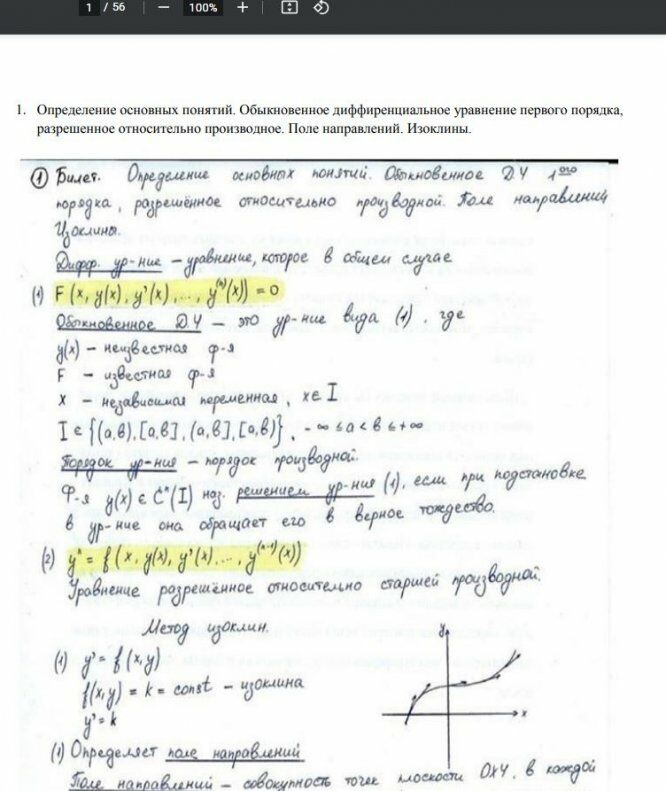 1 / 56 — 100% +
1. Определение основных понятий. Обыкновенное диффиренциальное уравнение первого порядка,
разрешенное относительно производное. Поле направлений. Изоклины.
① Билет. Определение основных понятий. Обыкновенное ДУ 1ого
порядка, разрешённое относительно производной. Поле направлений
Изоклины.
Дифф. ур-ние – уравнение, которое в общем случае
(1) F(x, y(x), y'(x), ..., y⁽ⁿ⁾(x)) = 0
Обыкновенное ДУ – это ур-ние вида (1), где
y(x) – неизвестная ф-я
F – известная ф-я
x – независимая переменная, x ∈ I
I ∈ {(a,b), [a,b], (a,b], [a,b)}, -∞ ≤ a < b ≤ +∞
Порядок ур-ния – порядок производной.
Ф-я y(x) ∈ Cⁿ(I) наз. решением ур-ния (1), если при подстановке
в ур-ние она обращает его в верное тождество.
(2) yⁿ = f(x, y(x), y'(x), ..., y⁽ⁿ⁻¹⁾(x))
Уравнение разрешённое относительно старшей производной.
Метод изоклин.
(1) y' = f(x,y)
f(x,y) = k = const – изоклина
y' = k
y
x
(1) Определяет поле направлений
Поле направлений – совокупность точек плоскости OXY, в каждой